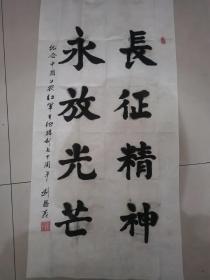 長征精神
永放光芒
纪念中国工农红军长征胜利七十周年